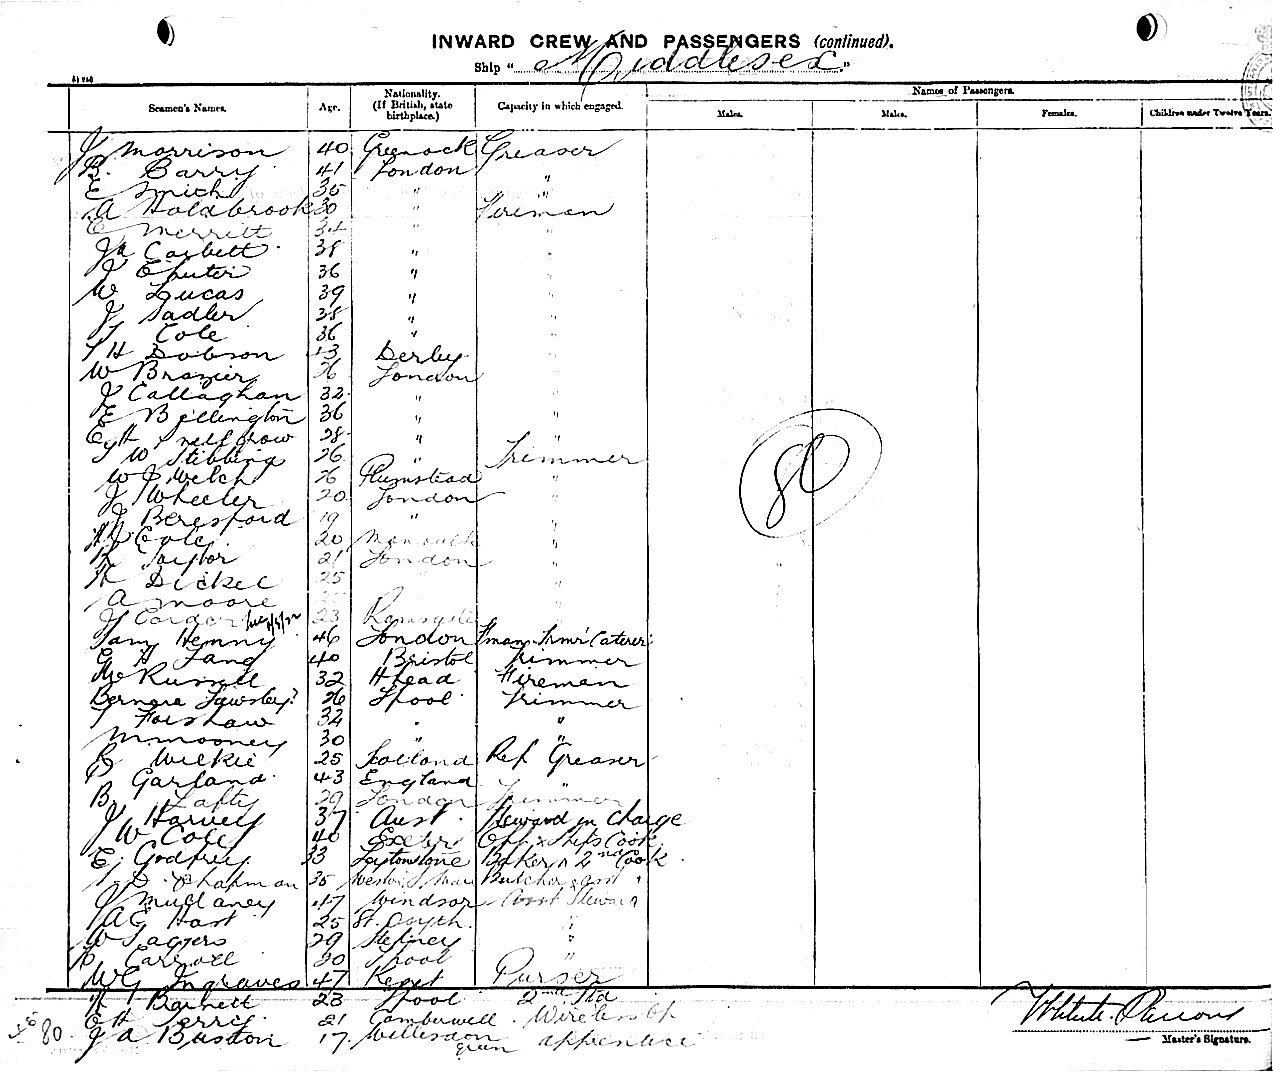 INWARD CREW AND PASSENGERS (continued).
Ship "Middlesex"
Seamen's Names. Age. Nationality. (If British, state birthplace.) Capacity in which engaged. Names of Passengers.
Males. Males. Females. Children under Twelve Years.
J Morrison 40 Greenock Greaser
B. Barry 41 London "
E Smich 35 " "
A Holdbrook 30 " Fireman
E Merrett 34 " "
Corbett 38 " "
J 36 " "
W Lucas 39 " "
J Sadler 38 " "
T Cole 36 " "
T H Dobson 43 Derby "
W Brazier 26 London "
J Callaghan 32 " "
E Billington 36 " "
E H Snellgrow 28 " "
T W Stebbing 26 " Trimmer
W J Welch 26 Plumstead "
J Wheeler 20 London "
J Beresford 19 " "
Cole 20 Monmouth "
R Taylor 21 London "
H Dickel 25 "
A Moore "
J Carder 23 Ramsgate "
Samy Hemmy 46 London Fman Trmr Caterer
E H Lang 40 Bristol Trimmer
Mc Russell 32 Hhead Fireman
Bernard Tawsley? 26 Lpool Trimmer
T Forshaw 34 " "
M Mooney 30 " "
R Wilkie 25 Scotland Ref Greaser
P Garland 43 England "
B Lafty 29 London Trimmer
J Harvey 37 Aust. Steward in Charge
J W Cole 40 Exeter Ships Cook
E. Godfrey 33 Leytonstone Baker & 2nd Cook
D. Chapman 35 Butcher & asst "
J Mullaney 47 Windsor Asst Steward
A E Hart 25 St. Osyth "
W Sagers 29 Stepney "
P Carroll 20 Lpool "
W G Ingraves 47 Kent Purser
H Barnett 23 Lpool 2nd Std
E H Perry 21 Camberwell Wireless Op
J A Buston 17. Willesden Green apprentice
80
80.
Master's Signature.